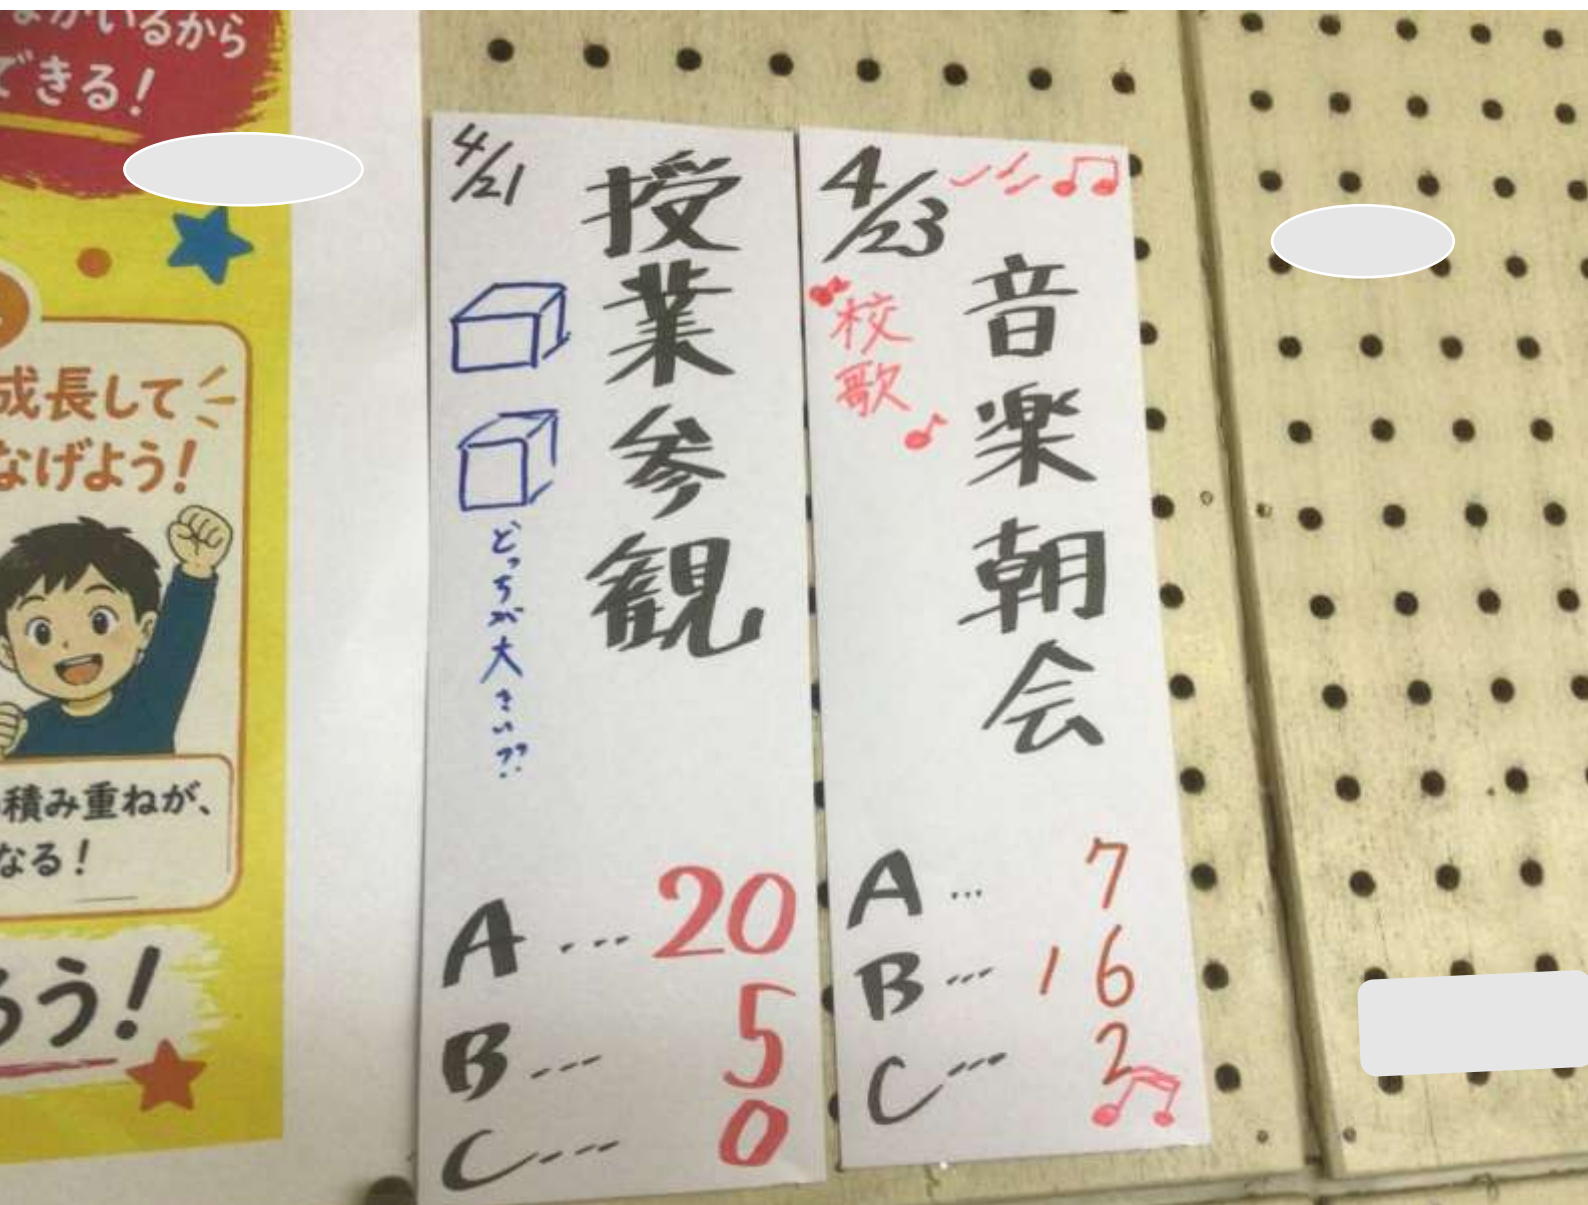 できる！
成長して
なげよう！
積み重ねが、
なる！
ろう！
4/21
授業参観
どっちが大きい??
A … 20
B … 5
C … 0
4/23
音楽朝会
校歌
A … 7
B … 16
C … 2